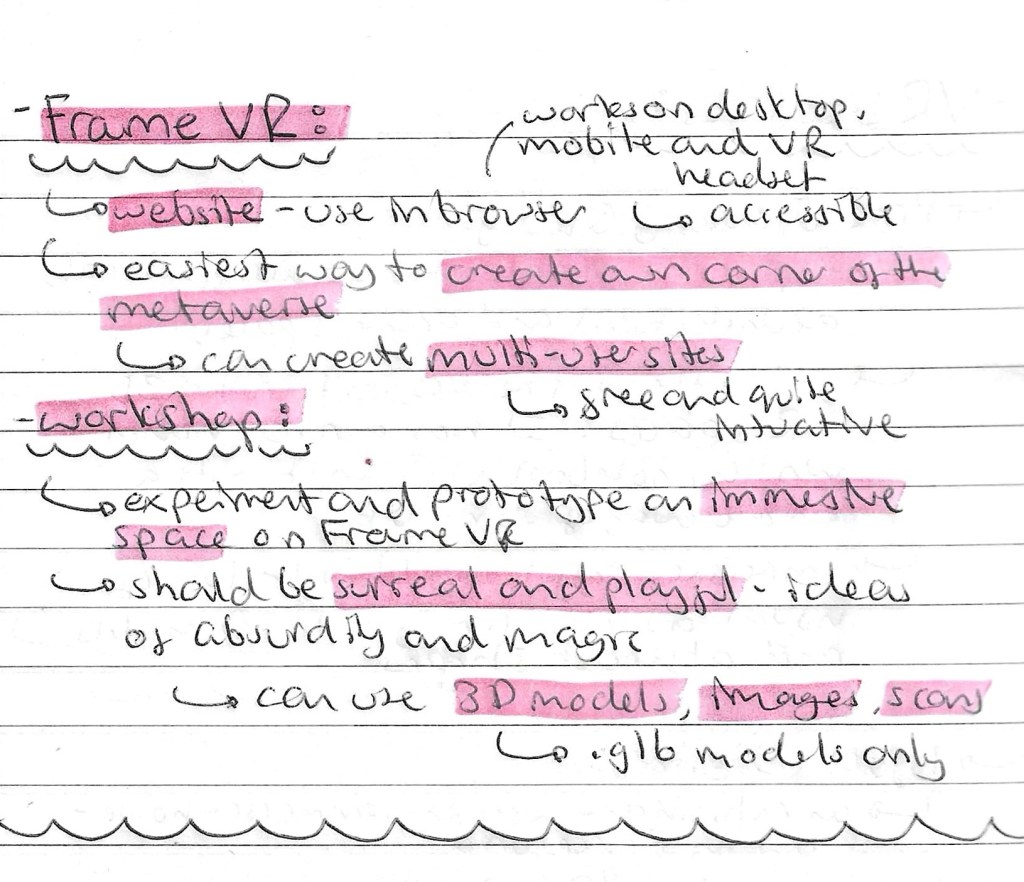 - Frame VR:
works on desktop,
mobile and VR
headset
↳ website - use in browser ↳ accessible
↳ easiest way to create own corner of the
metaverse
↳ can create multi-user sites
↳ free and quite
intuative
- workshop:
↳ experiment and prototype an immesive
space on Frame VR
↳ should be surreal and playful - ideas
of absurdity and magic
↳ can use 3D models, images, scans
↳ .glb models only